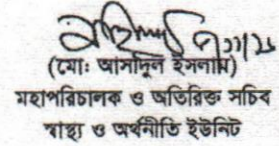 (মোঃ আসাদুল ইসলাম)
মহাপরিচালক ও অতিরিক্ত সচিব
স্বাস্থ্য ও অর্থনীতি ইউনিট